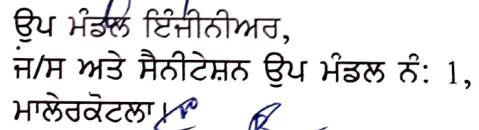 ਉਪ ਮੰਡਲ ਇੰਜੀਨੀਅਰ,
ਜਂ/ਸ ਅਤੇ ਸੈਨੀਟੇਸ਼ਨ ਉਪ ਮੰਡਲ ਨੰ: 1,
ਮਾਲੇਰਕੋਟਲਾ।